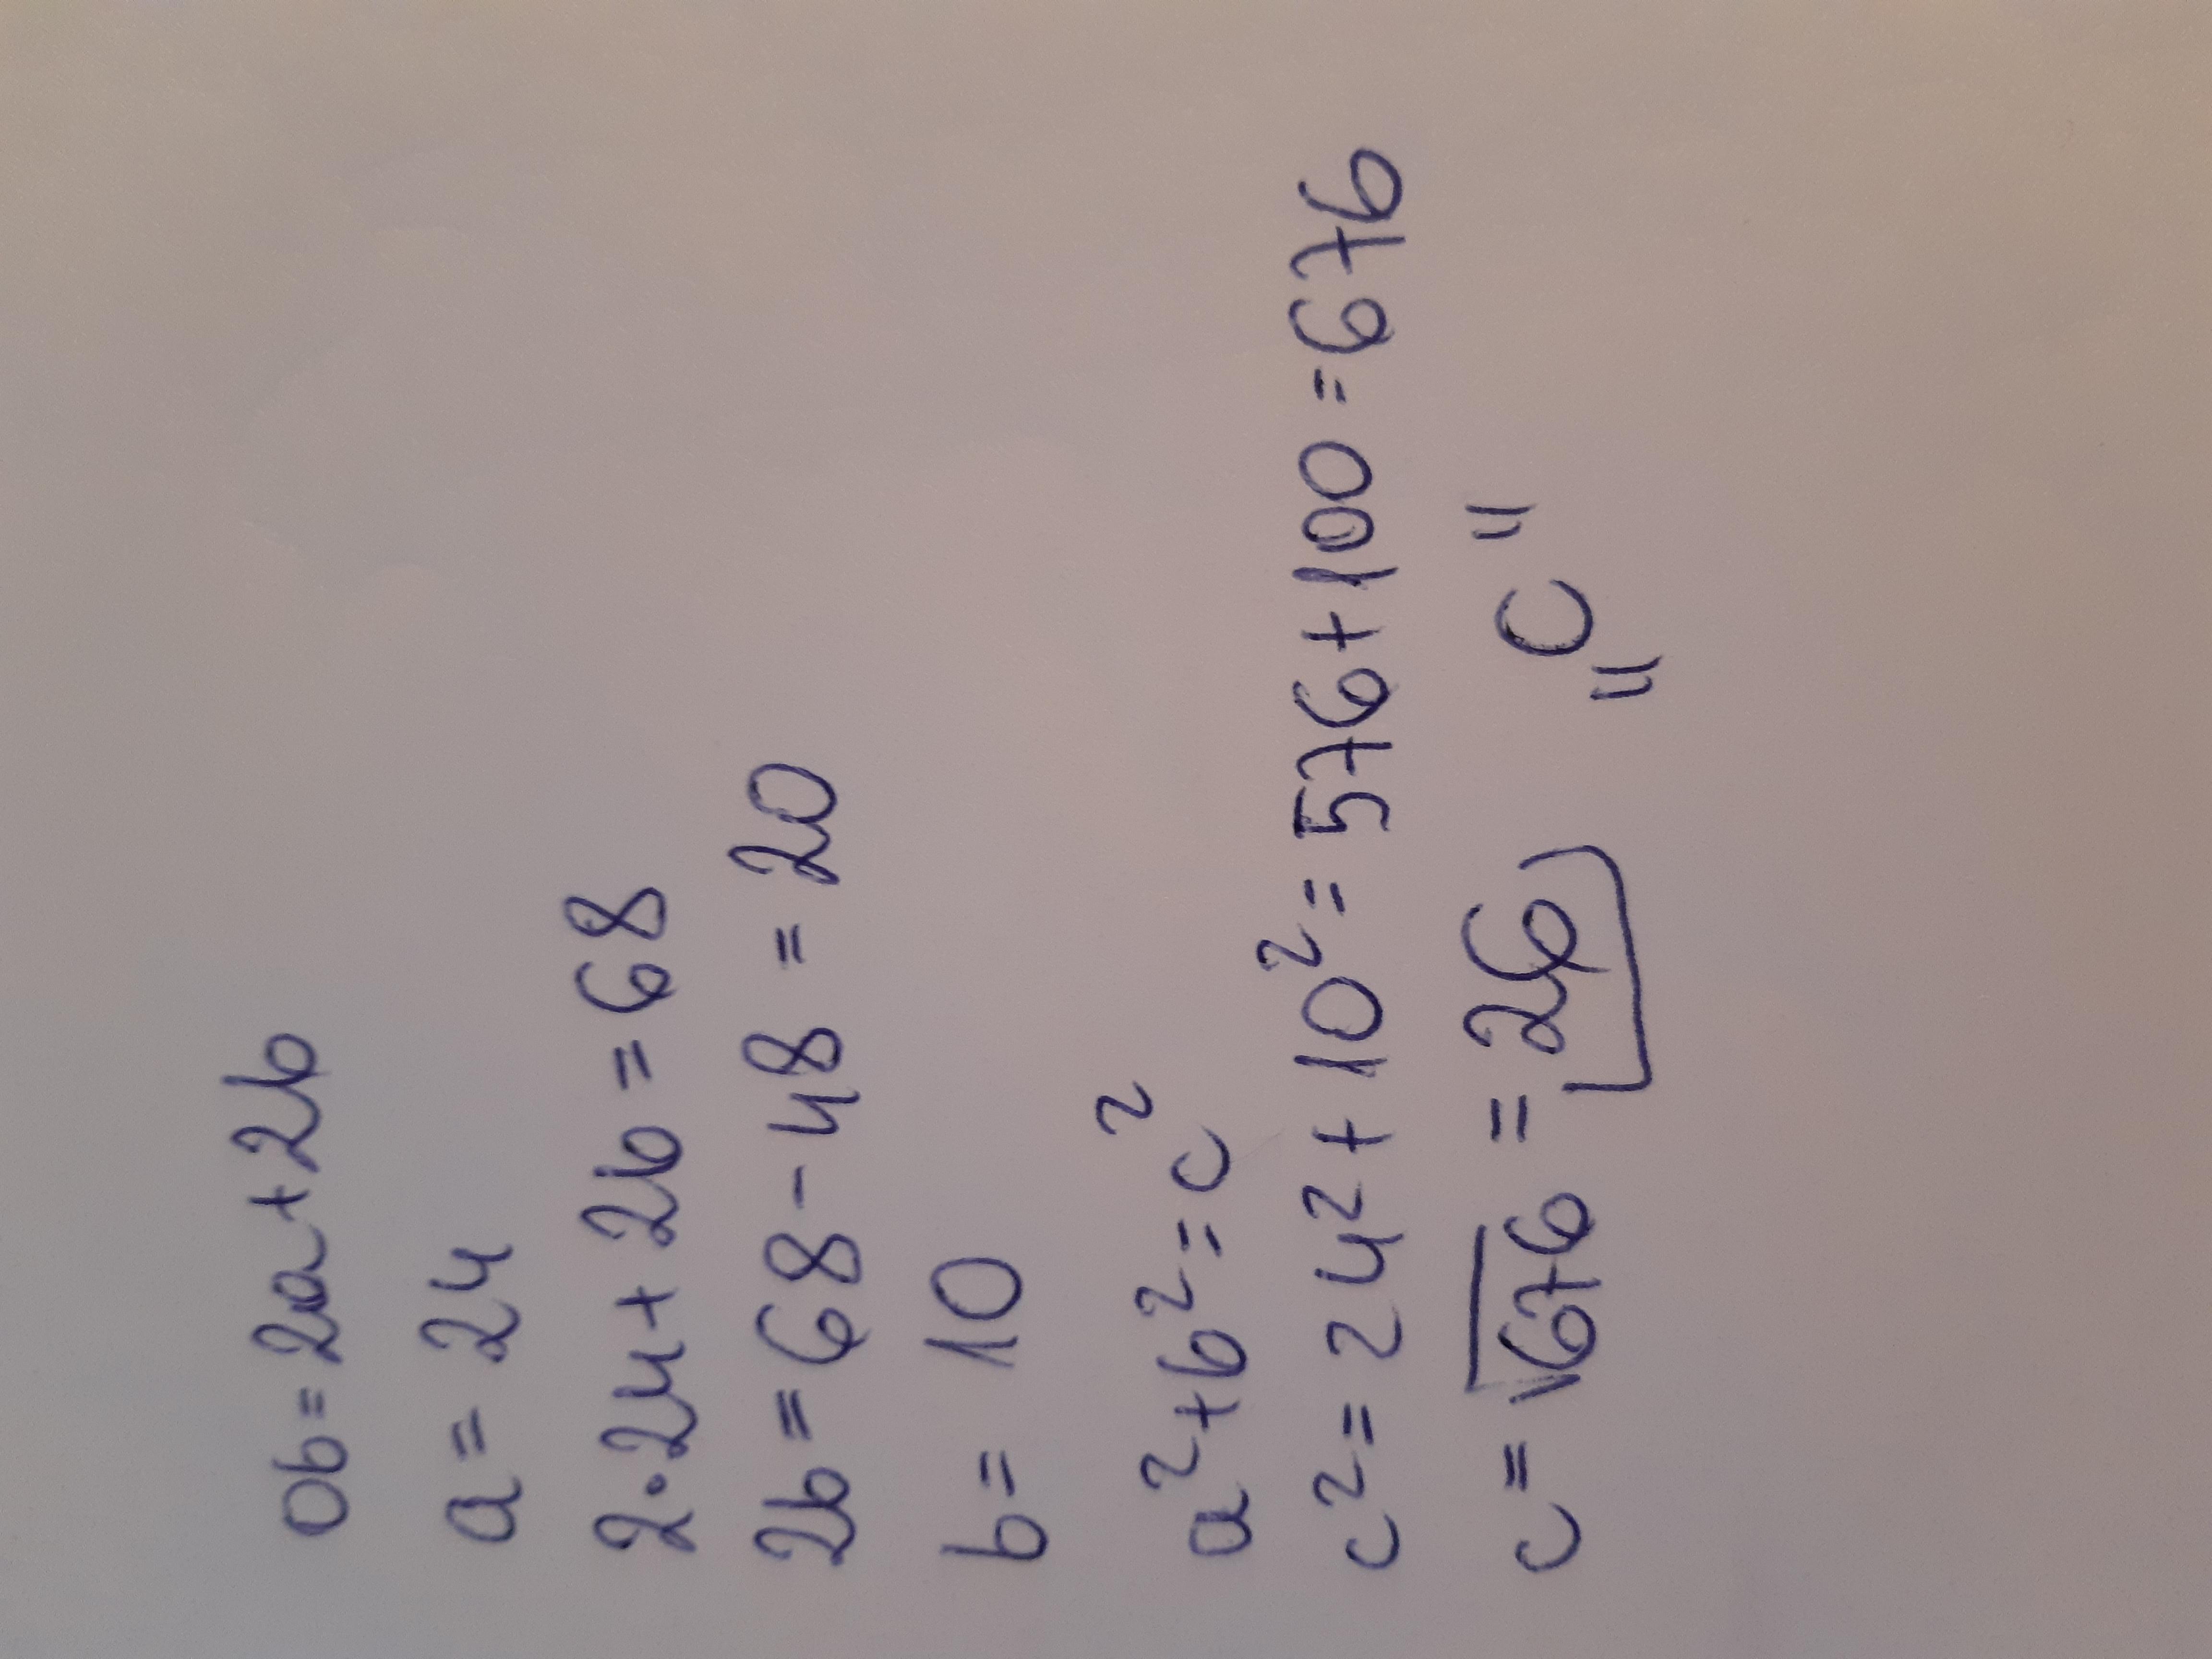 Ob = 2a + 2b
a = 24
2·24 + 2b = 68
2b = 68 - 48 = 20
b = 10
a² + b² = c²
c² = 24² + 10² = 576 + 100 = 676
c = √676 = 26 „C"